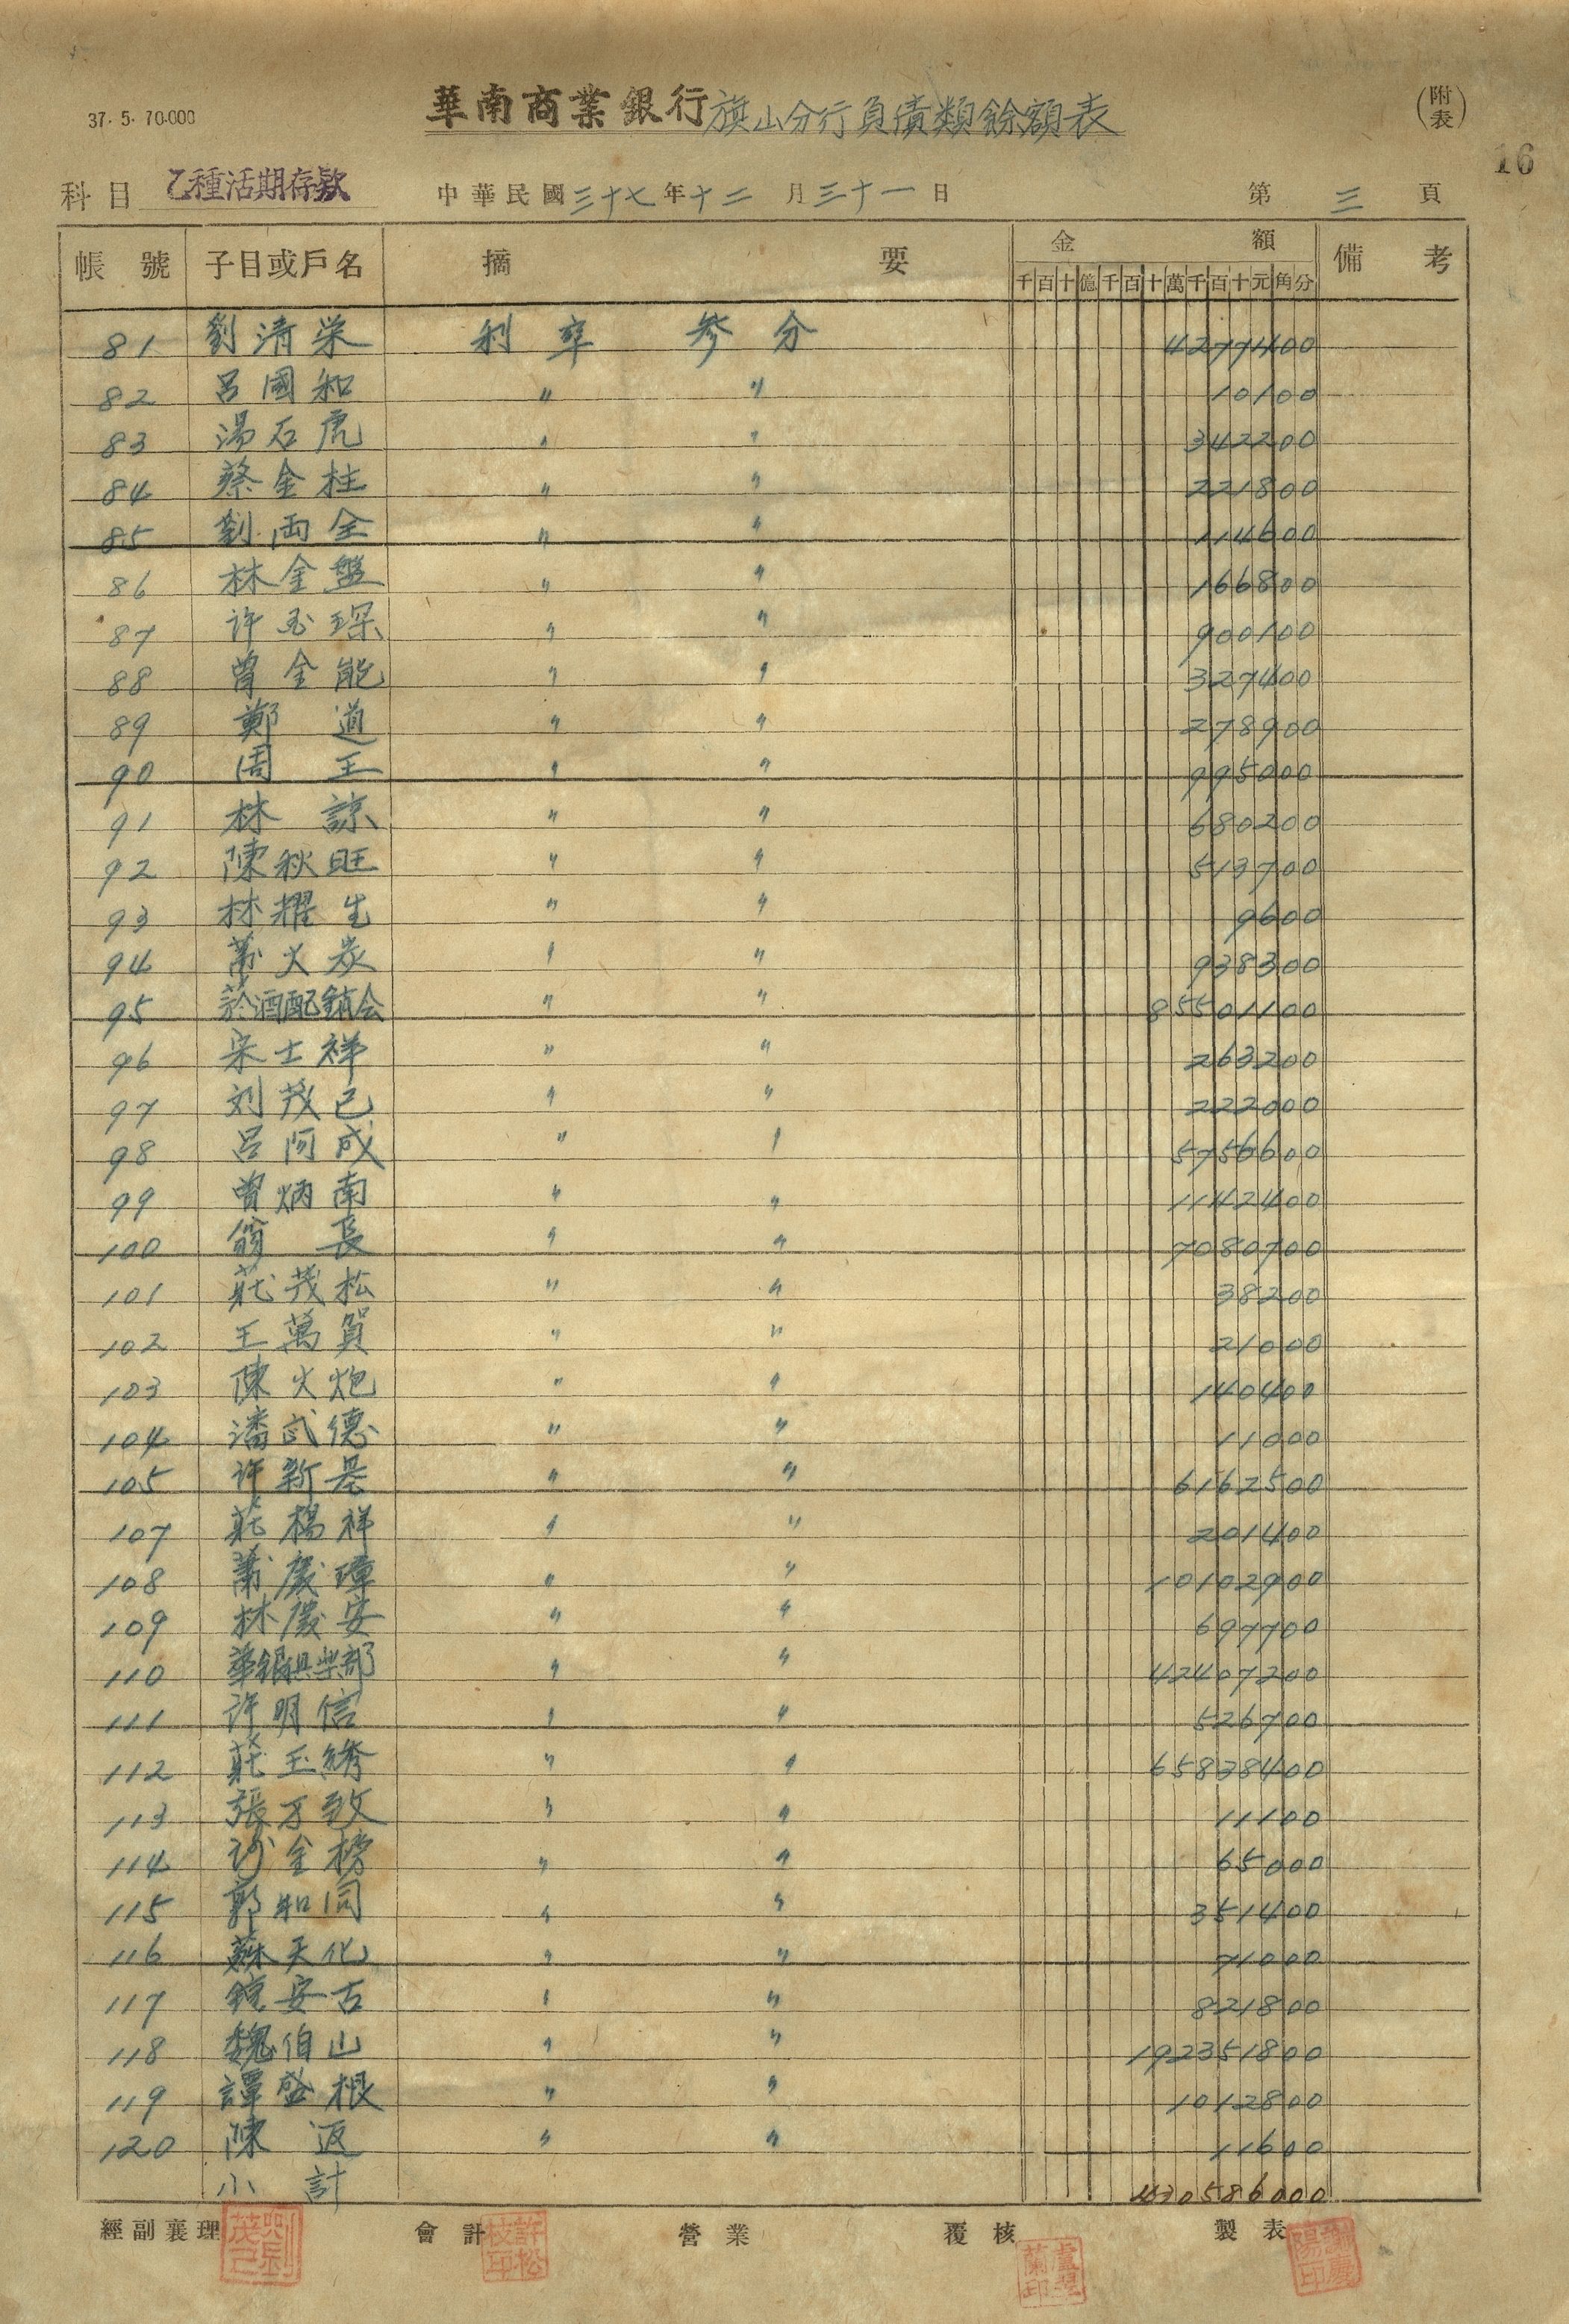 37. 5. 70.000
華南商業銀行旗山分行負債類餘額表
(附表)
16
科目 乙種活期存款 中華民國三十七年十二月三十一日 第三頁
帳號 子目或戶名 摘要 金額 備考
千百十億千百十萬千百十元角分
81 劉清栄 利率 參分 4277400
82 呂國和 〃 〃 10100
83 湯石虎 〃 〃 342200
84 蔡金柱 〃 〃 221800
85 劉両全 〃 〃 114600
86 林金盤 〃 〃 166800
87 许玉琛 〃 〃 900100
88 曾金能 〃 〃 327400
89 鄭道 〃 〃 278900
90 周王 〃 〃 995000
91 林諒 〃 〃 680200
92 陳秋旺 〃 〃 513700
93 林耀生 〃 〃 9600
94 萧火炭 〃 〃 938300
95 菸酒配銷会 〃 〃 85501100
96 宋士祥 〃 〃 263200
97 刘茂己 〃 〃 222000
98 呂阿成 〃 〃 5756600
99 曾炳南 〃 〃 1142400
100 翁長 〃 〃 7080700
101 莊茂松 〃 〃 38200
102 王萬賀 〃 〃 21000
103 陳火炮 〃 〃 140400
104 潘武德 〃 〃 11000
105 许新基 〃 〃 6162500
107 莊楊祥 〃 〃 201400
108 萧慶璋 〃 〃 10102900
109 林慶安 〃 〃 697700
110 華銀俱楽部 〃 〃 42407200
111 许明信 〃 〃 526700
112 莊玉綉 〃 〃 65838400
113 張万致 〃 〃 11100
114 金榜 〃 〃 65000
115 郭和同 〃 〃 351400
116 蘇天化 〃 〃 71000
117 安古 〃 〃 821800
118 魏伯山 〃 〃 192351800
119 譚盛根 〃 〃 1012800
120 陳返 〃 〃 11600
小計 430586000
經副襄理 會計 營業 覆核 製表
劉茂己
許松枝印